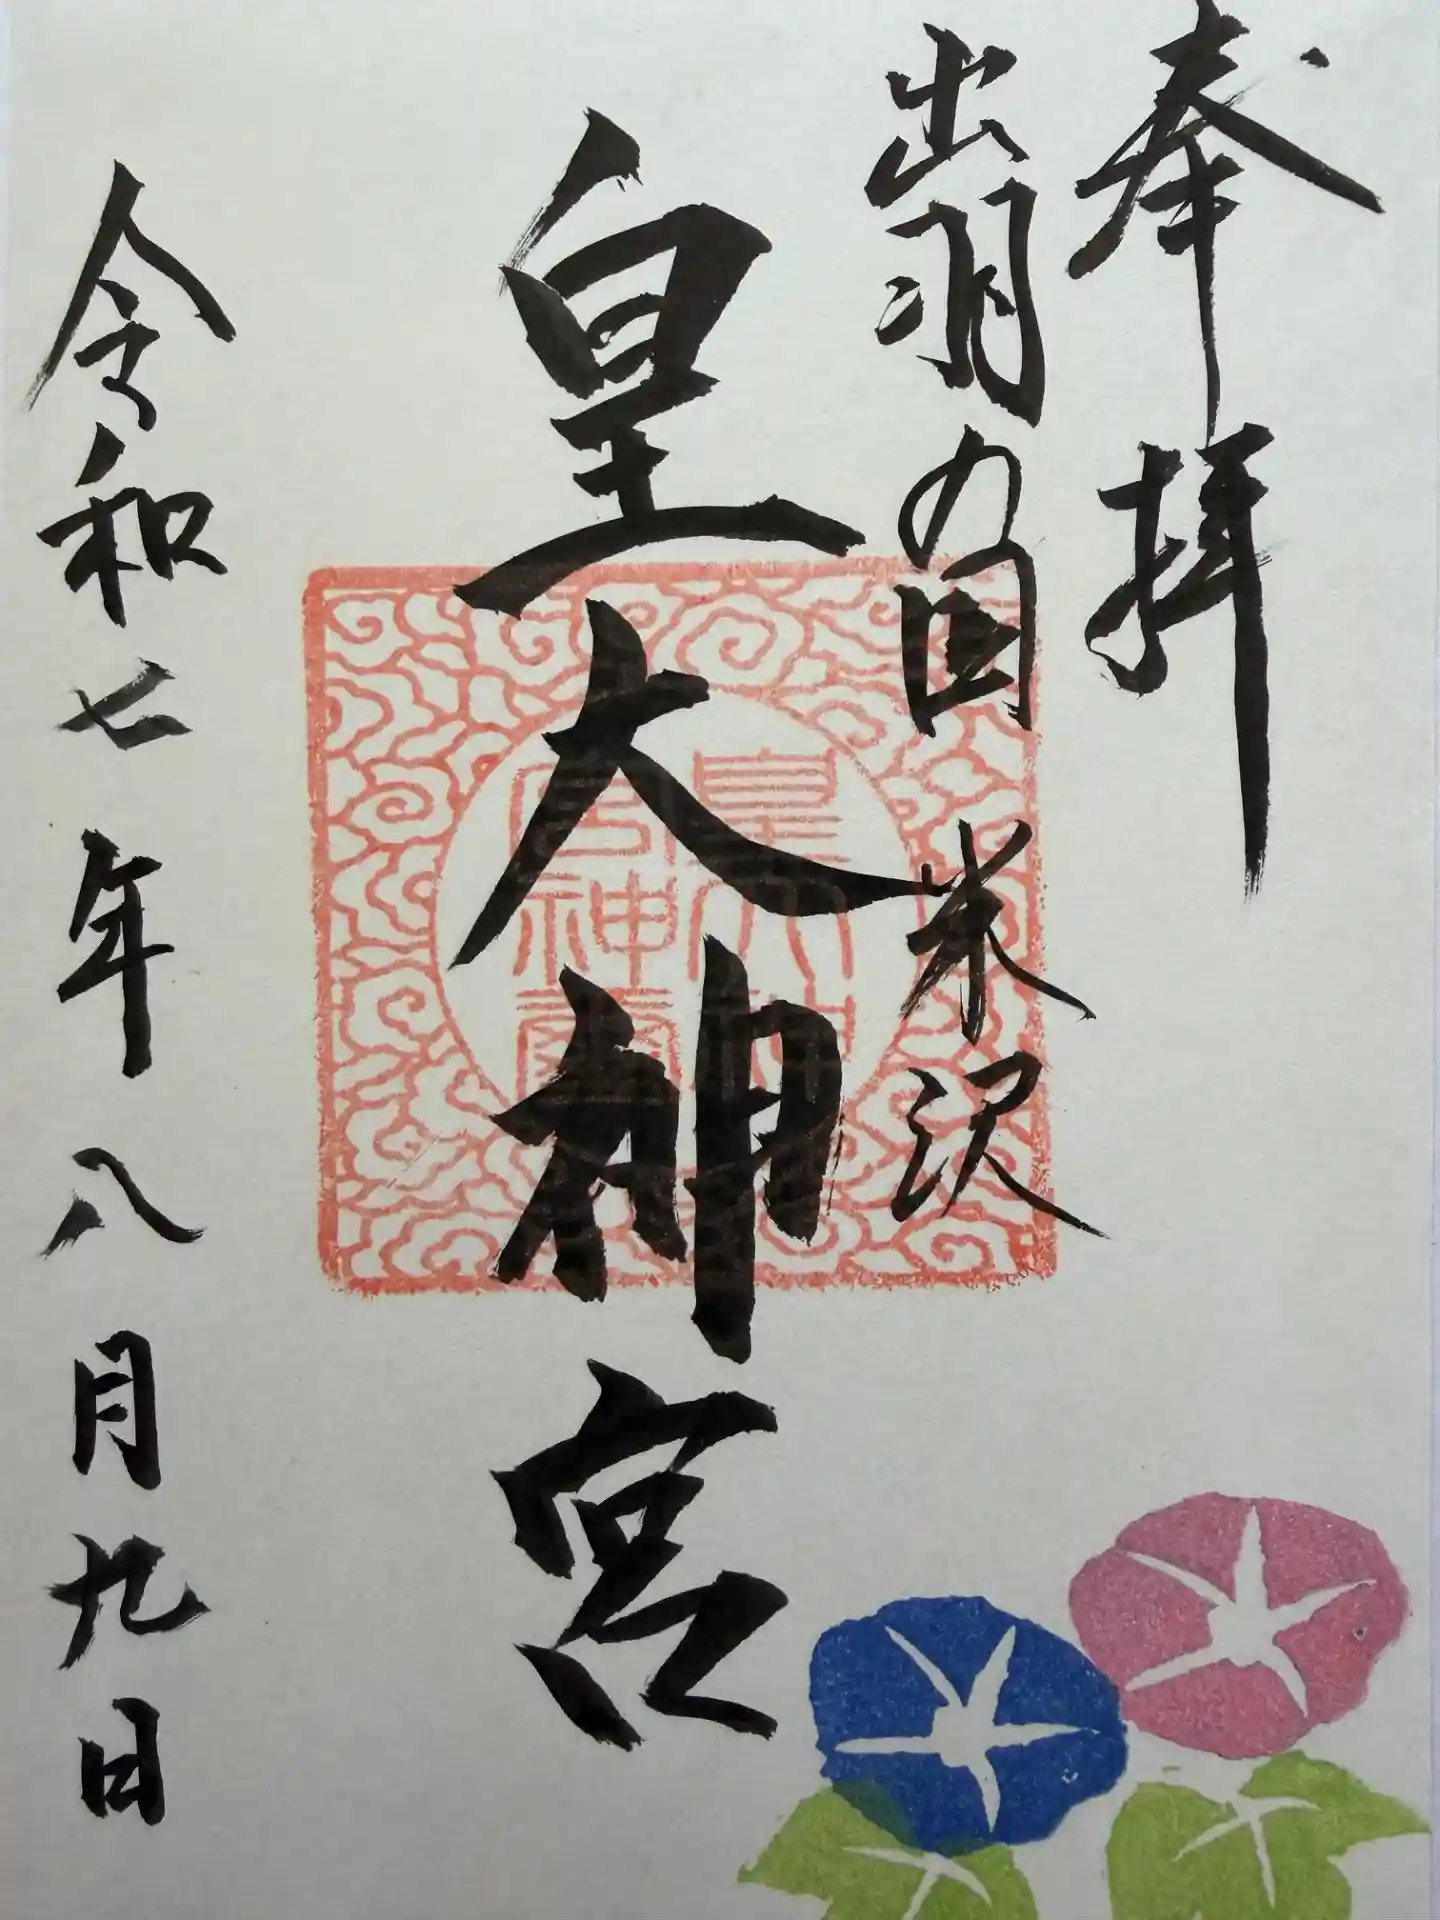 奉拝
出羽の国 米沢
皇大神宮
令和七年八月九日